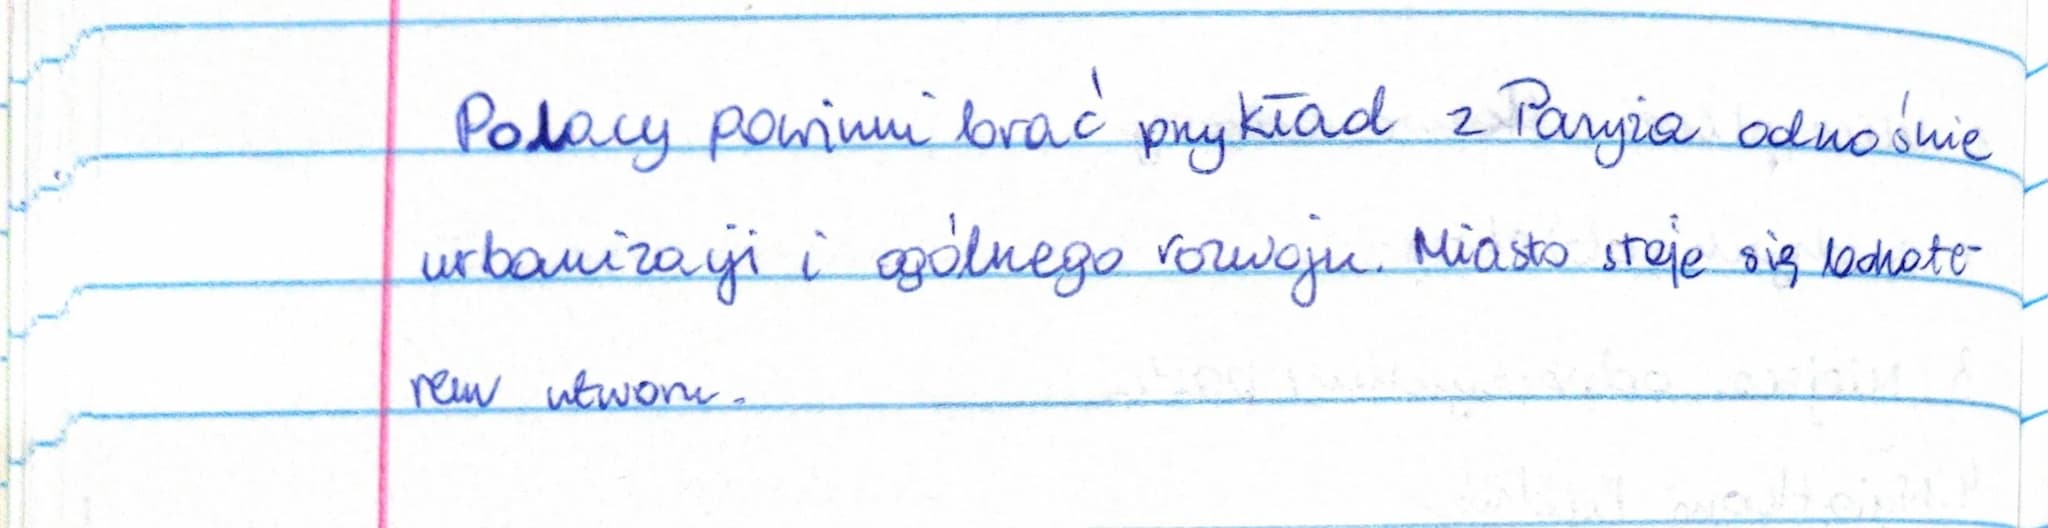 Polacy powinni brać przykład z Paryża odnośnie
urbanizacji i ogólnego rozwoju. Miasto staje się bohate-
rem utworu.